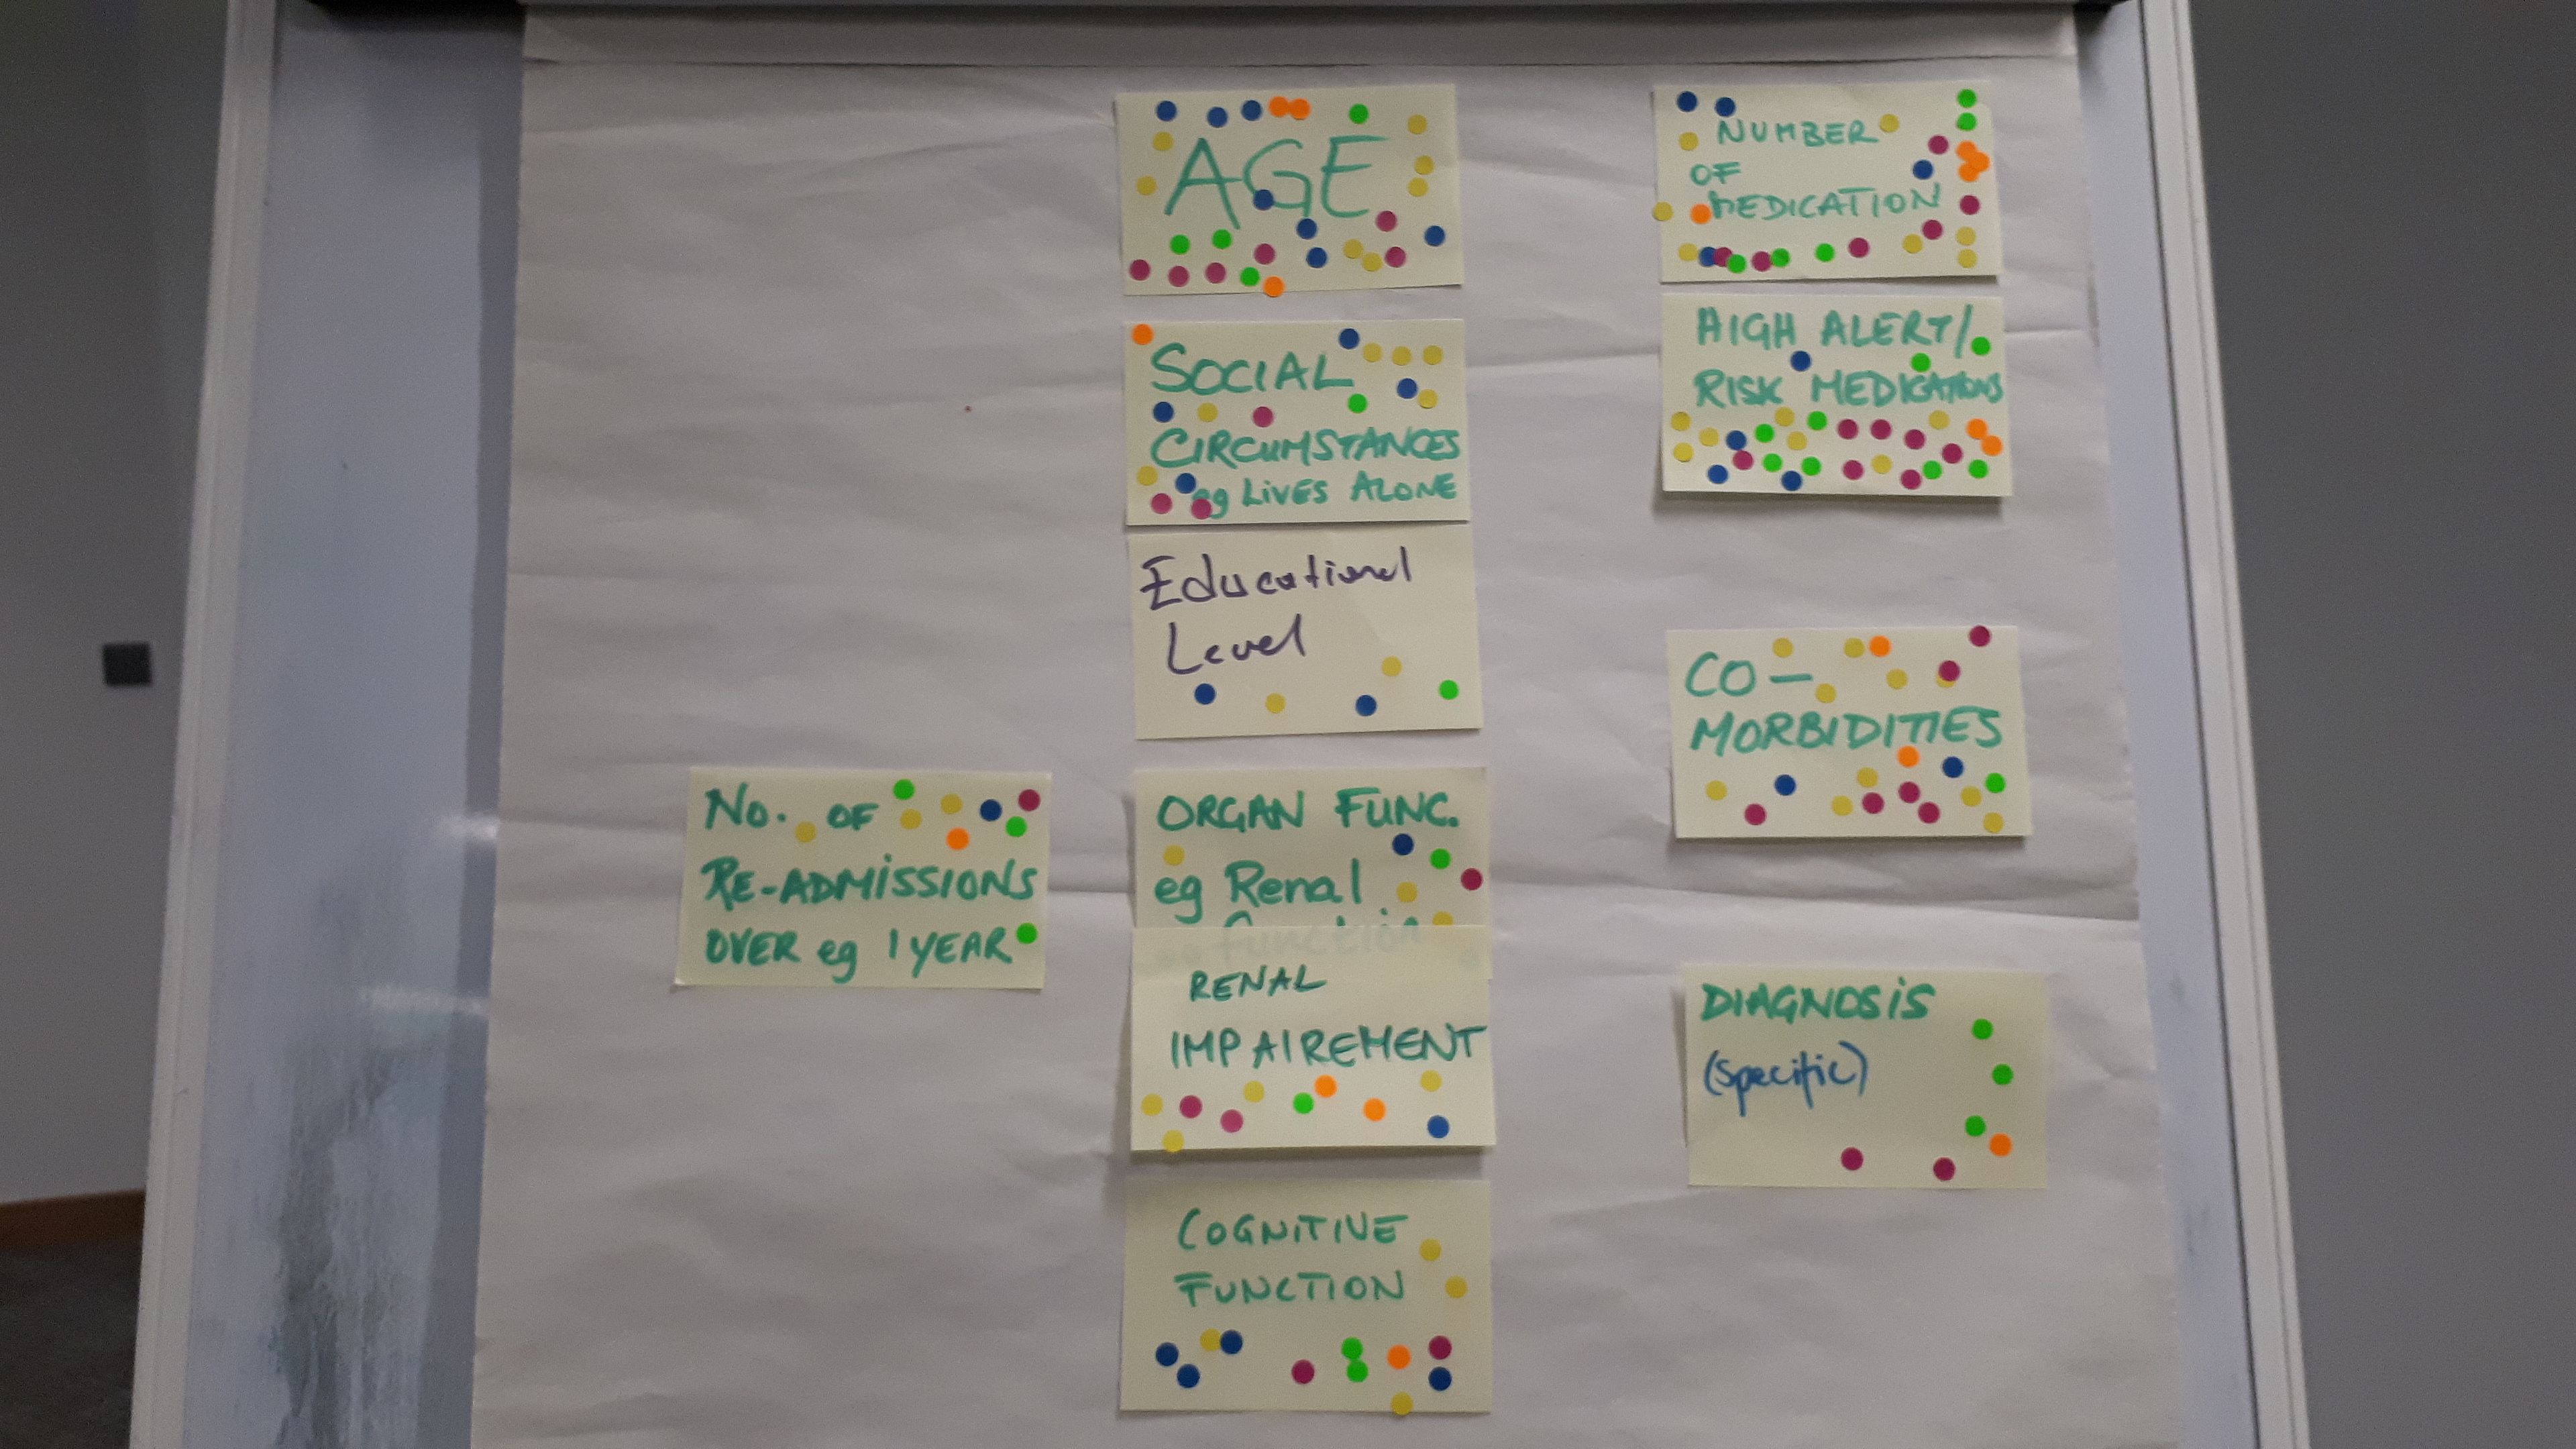 AGE
SOCIAL
CIRCUMSTANCES
eg LIVES ALONE
Educational
Level
No. OF
RE-ADMISSIONS
OVER eg 1 YEAR
ORGAN FUNC.
eg Renal
function
RENAL
IMPAIREMENT
COGNITIVE
FUNCTION
NUMBER
OF
MEDICATION
HIGH ALERT/
RISK MEDICATIONS
CO-
MORBIDITIES
DIAGNOSIS
(specific)